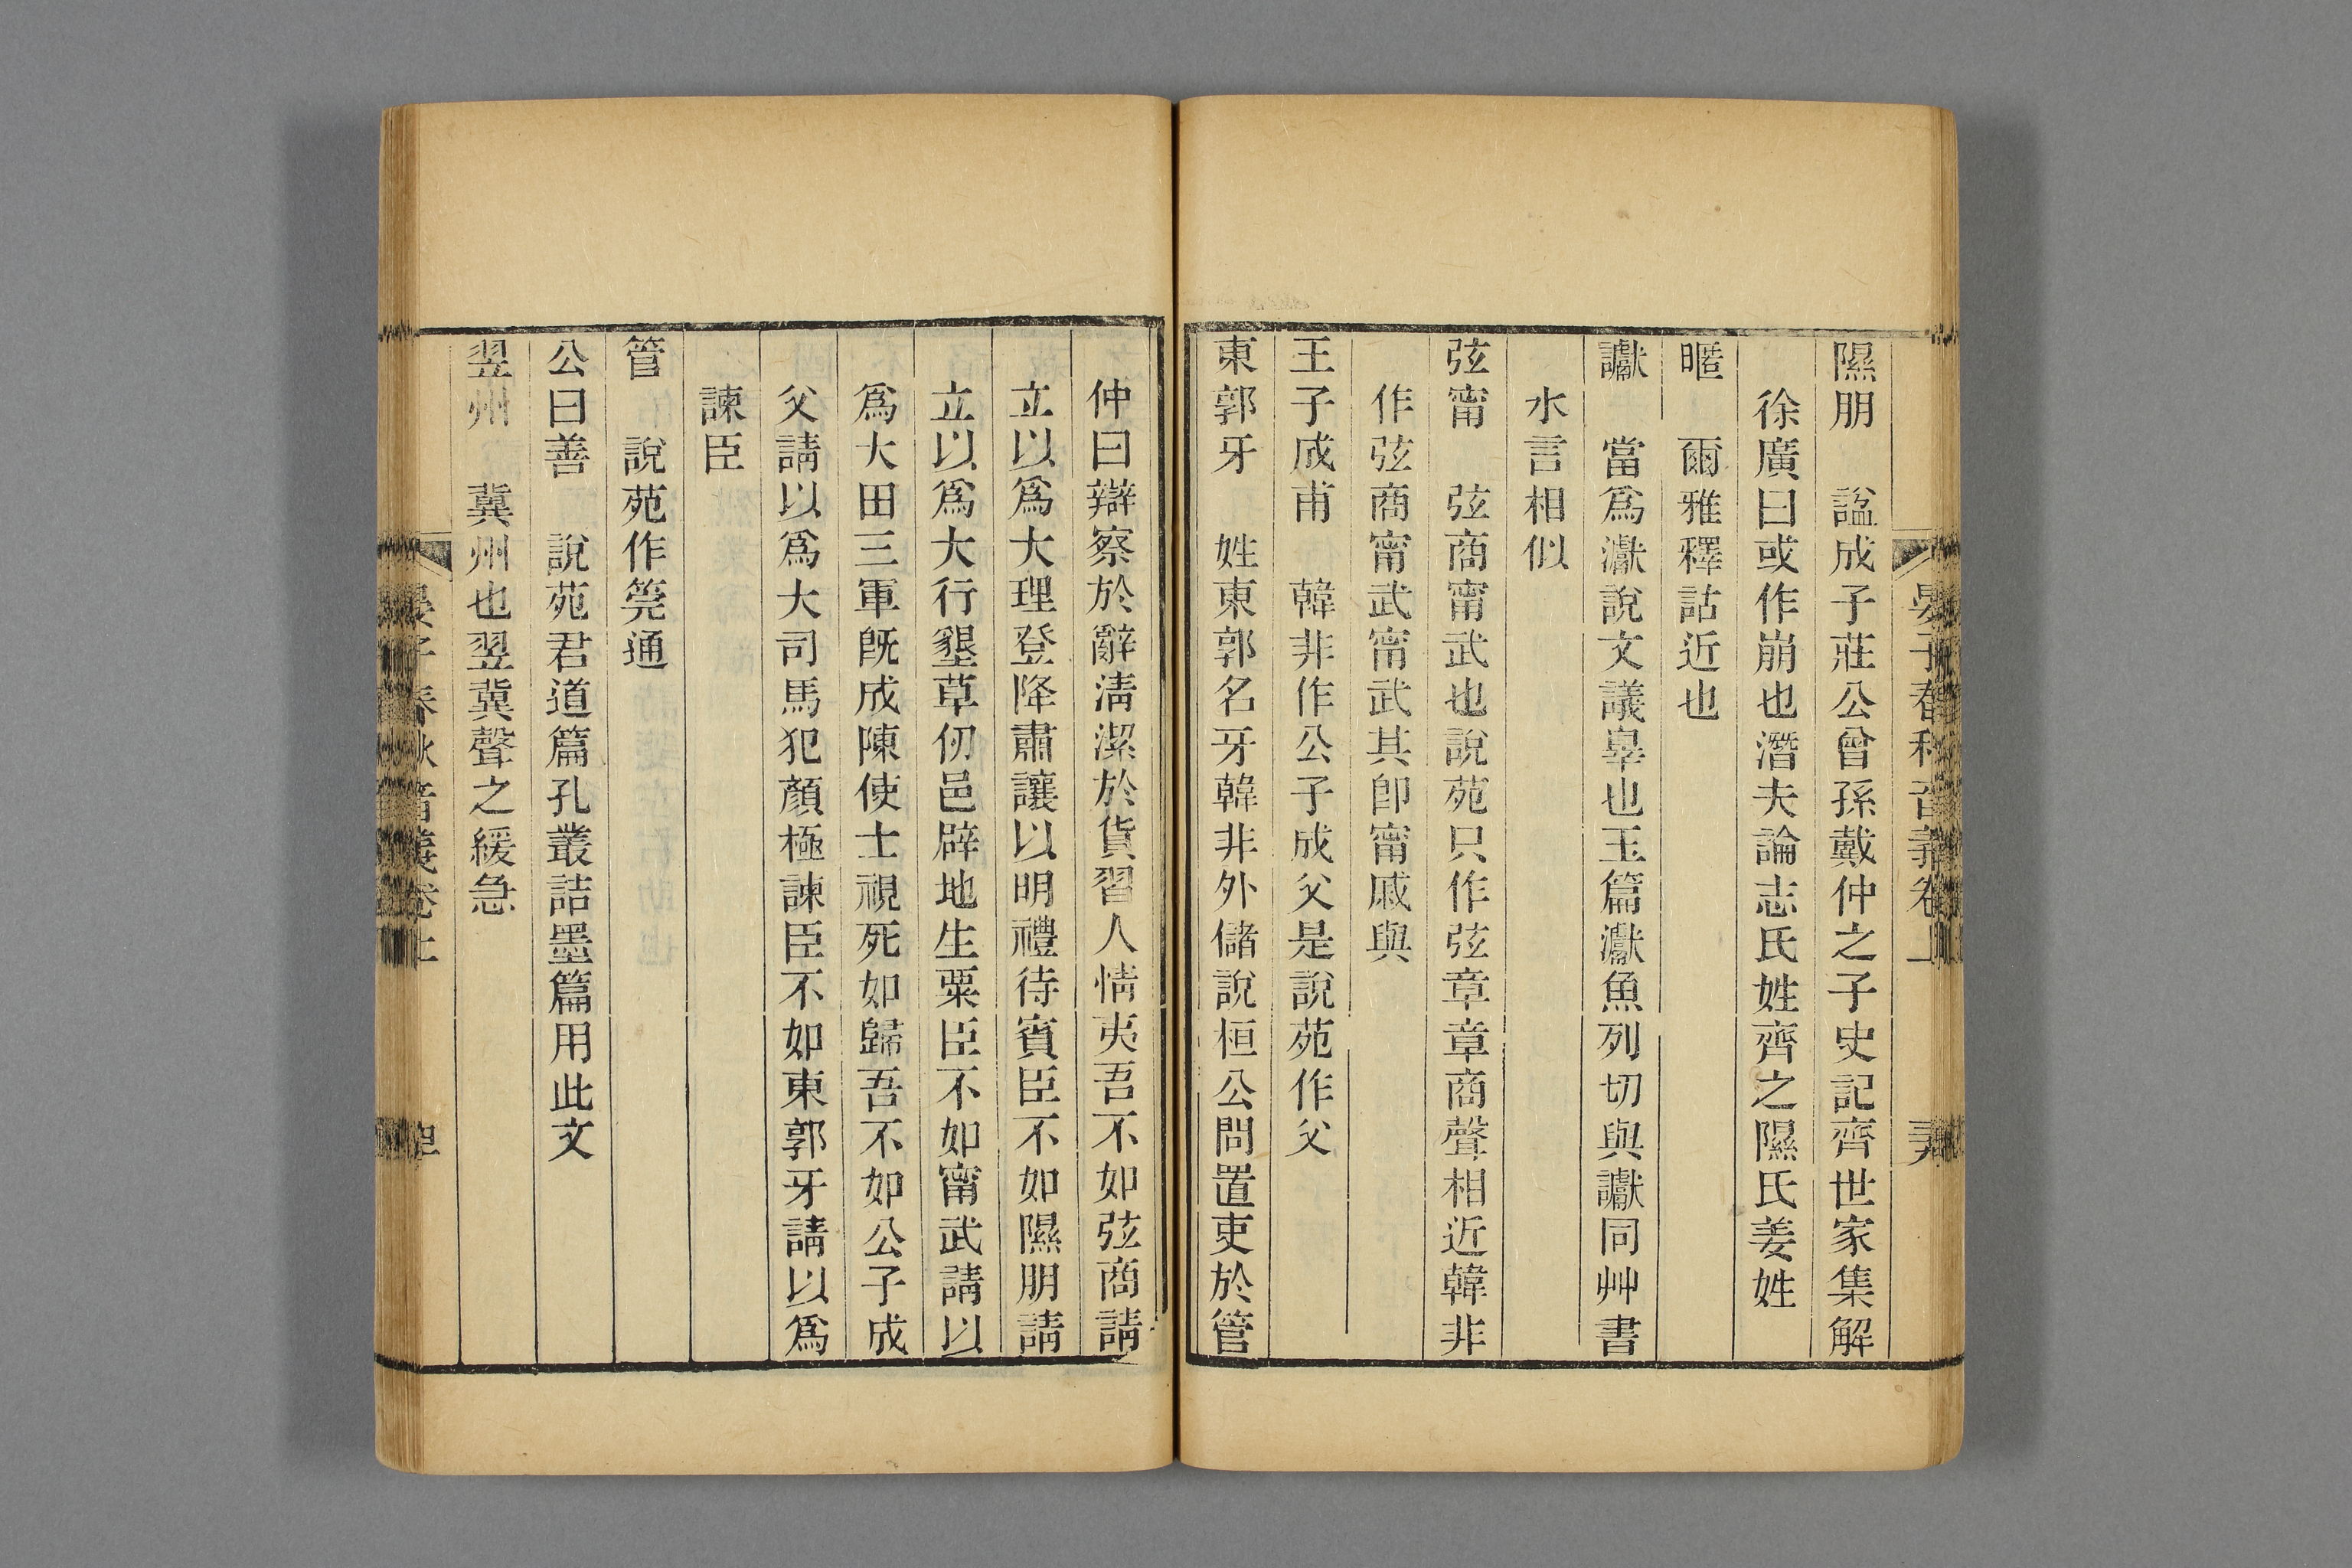 隰朋　諡成子莊公曾孫戴仲之子史記齊世家集解
徐廣曰或作崩也潛夫論志氏姓齊之隰氏姜姓
暱　爾雅釋詁近也
讞　當爲瀐說文議辠也玉篇瀐魚列切與讞同艸書
水言相似
弦甯　弦商甯武也說苑只作弦章章商聲相近韓非
作弦商甯武甯武其卽甯戚與
王子成甫　韓非作公子成父是說苑作父
東郭牙　姓東郭名牙韓非外儲說桓公問置吏於管
仲曰辯察於辭淸潔於貨習人情夷吾不如弦商請
立以爲大理登降肅讓以明禮待賓臣不如隰朋請
立以爲大行墾草仞邑辟地生粟臣不如甯武請以
爲大田三軍旣成陳使士視死如歸吾不如公子成
父請以爲大司馬犯顏極諫臣不如東郭牙請以爲
諫臣
管　說苑作筦通
公曰善　說苑君道篇孔叢詰墨篇用此文
翌州　冀州也翌冀聲之緩急
晏子春秋音義卷上